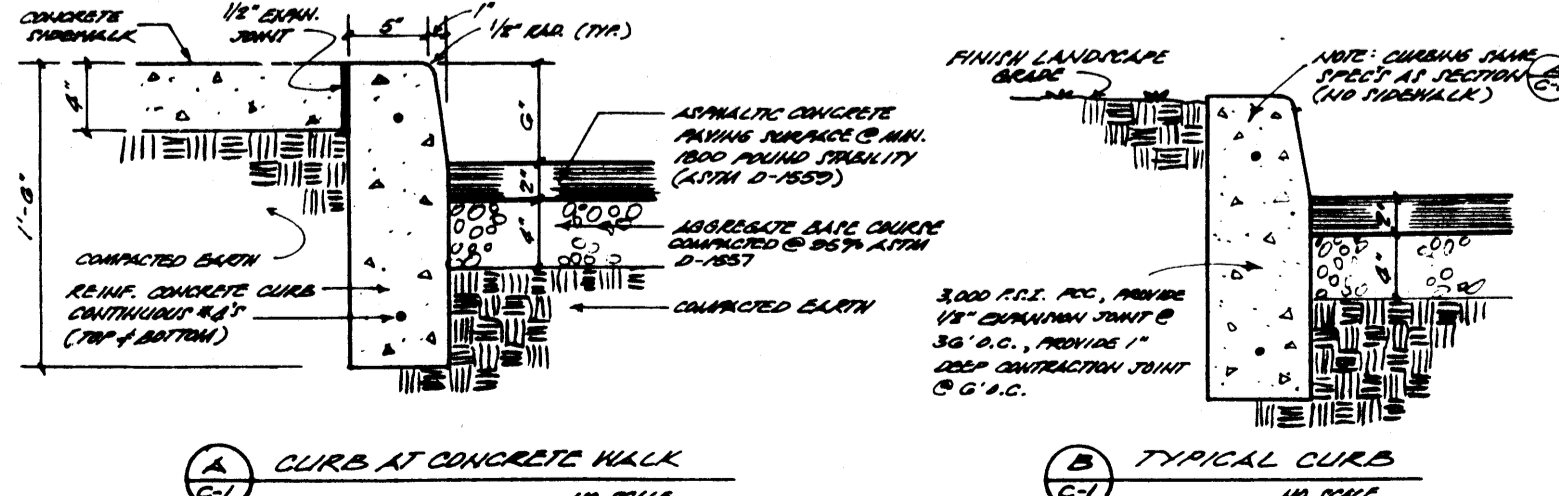 CONCRETE
SIDEWALK
1/2" EXPAN.
JOINT
5"
1"
1/2" RAD. (TYP.)
4"
1'-6"
6"
2"
4"
ASPHALTIC CONCRETE
PAVING SURFACE @ MIN.
1800 POUND STABILITY
(ASTM D-1559)
AGGREGATE BASE COURSE
COMPACTED @ 95% ASTM
D-1557
COMPACTED EARTH
COMPACTED EARTH
REINF. CONCRETE CURB
CONTINUOUS #4'S
(TOP & BOTTOM)
A
C-1
CURB AT CONCRETE WALK
NO SCALE
FINISH LANDSCAPE
GRADE
NOTE: CURBING SAME
SPEC'S AS SECTION
(NO SIDEWALK)
2"
4"
3,000 P.S.I. PCC, PROVIDE
1/2" EXPANSION JOINT @
36' O.C., PROVIDE 1"
DEEP CONTRACTION JOINT
@ 6' O.C.
B
C-1
TYPICAL CURB
NO SCALE